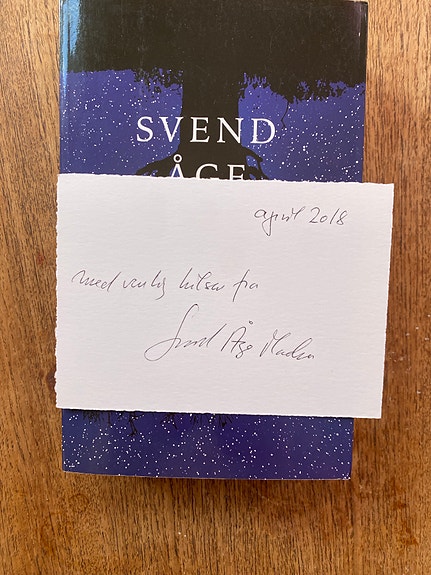 SVEND
ÅGE
april 2018
med venlig hilsen fra
Svend Åge Madsen